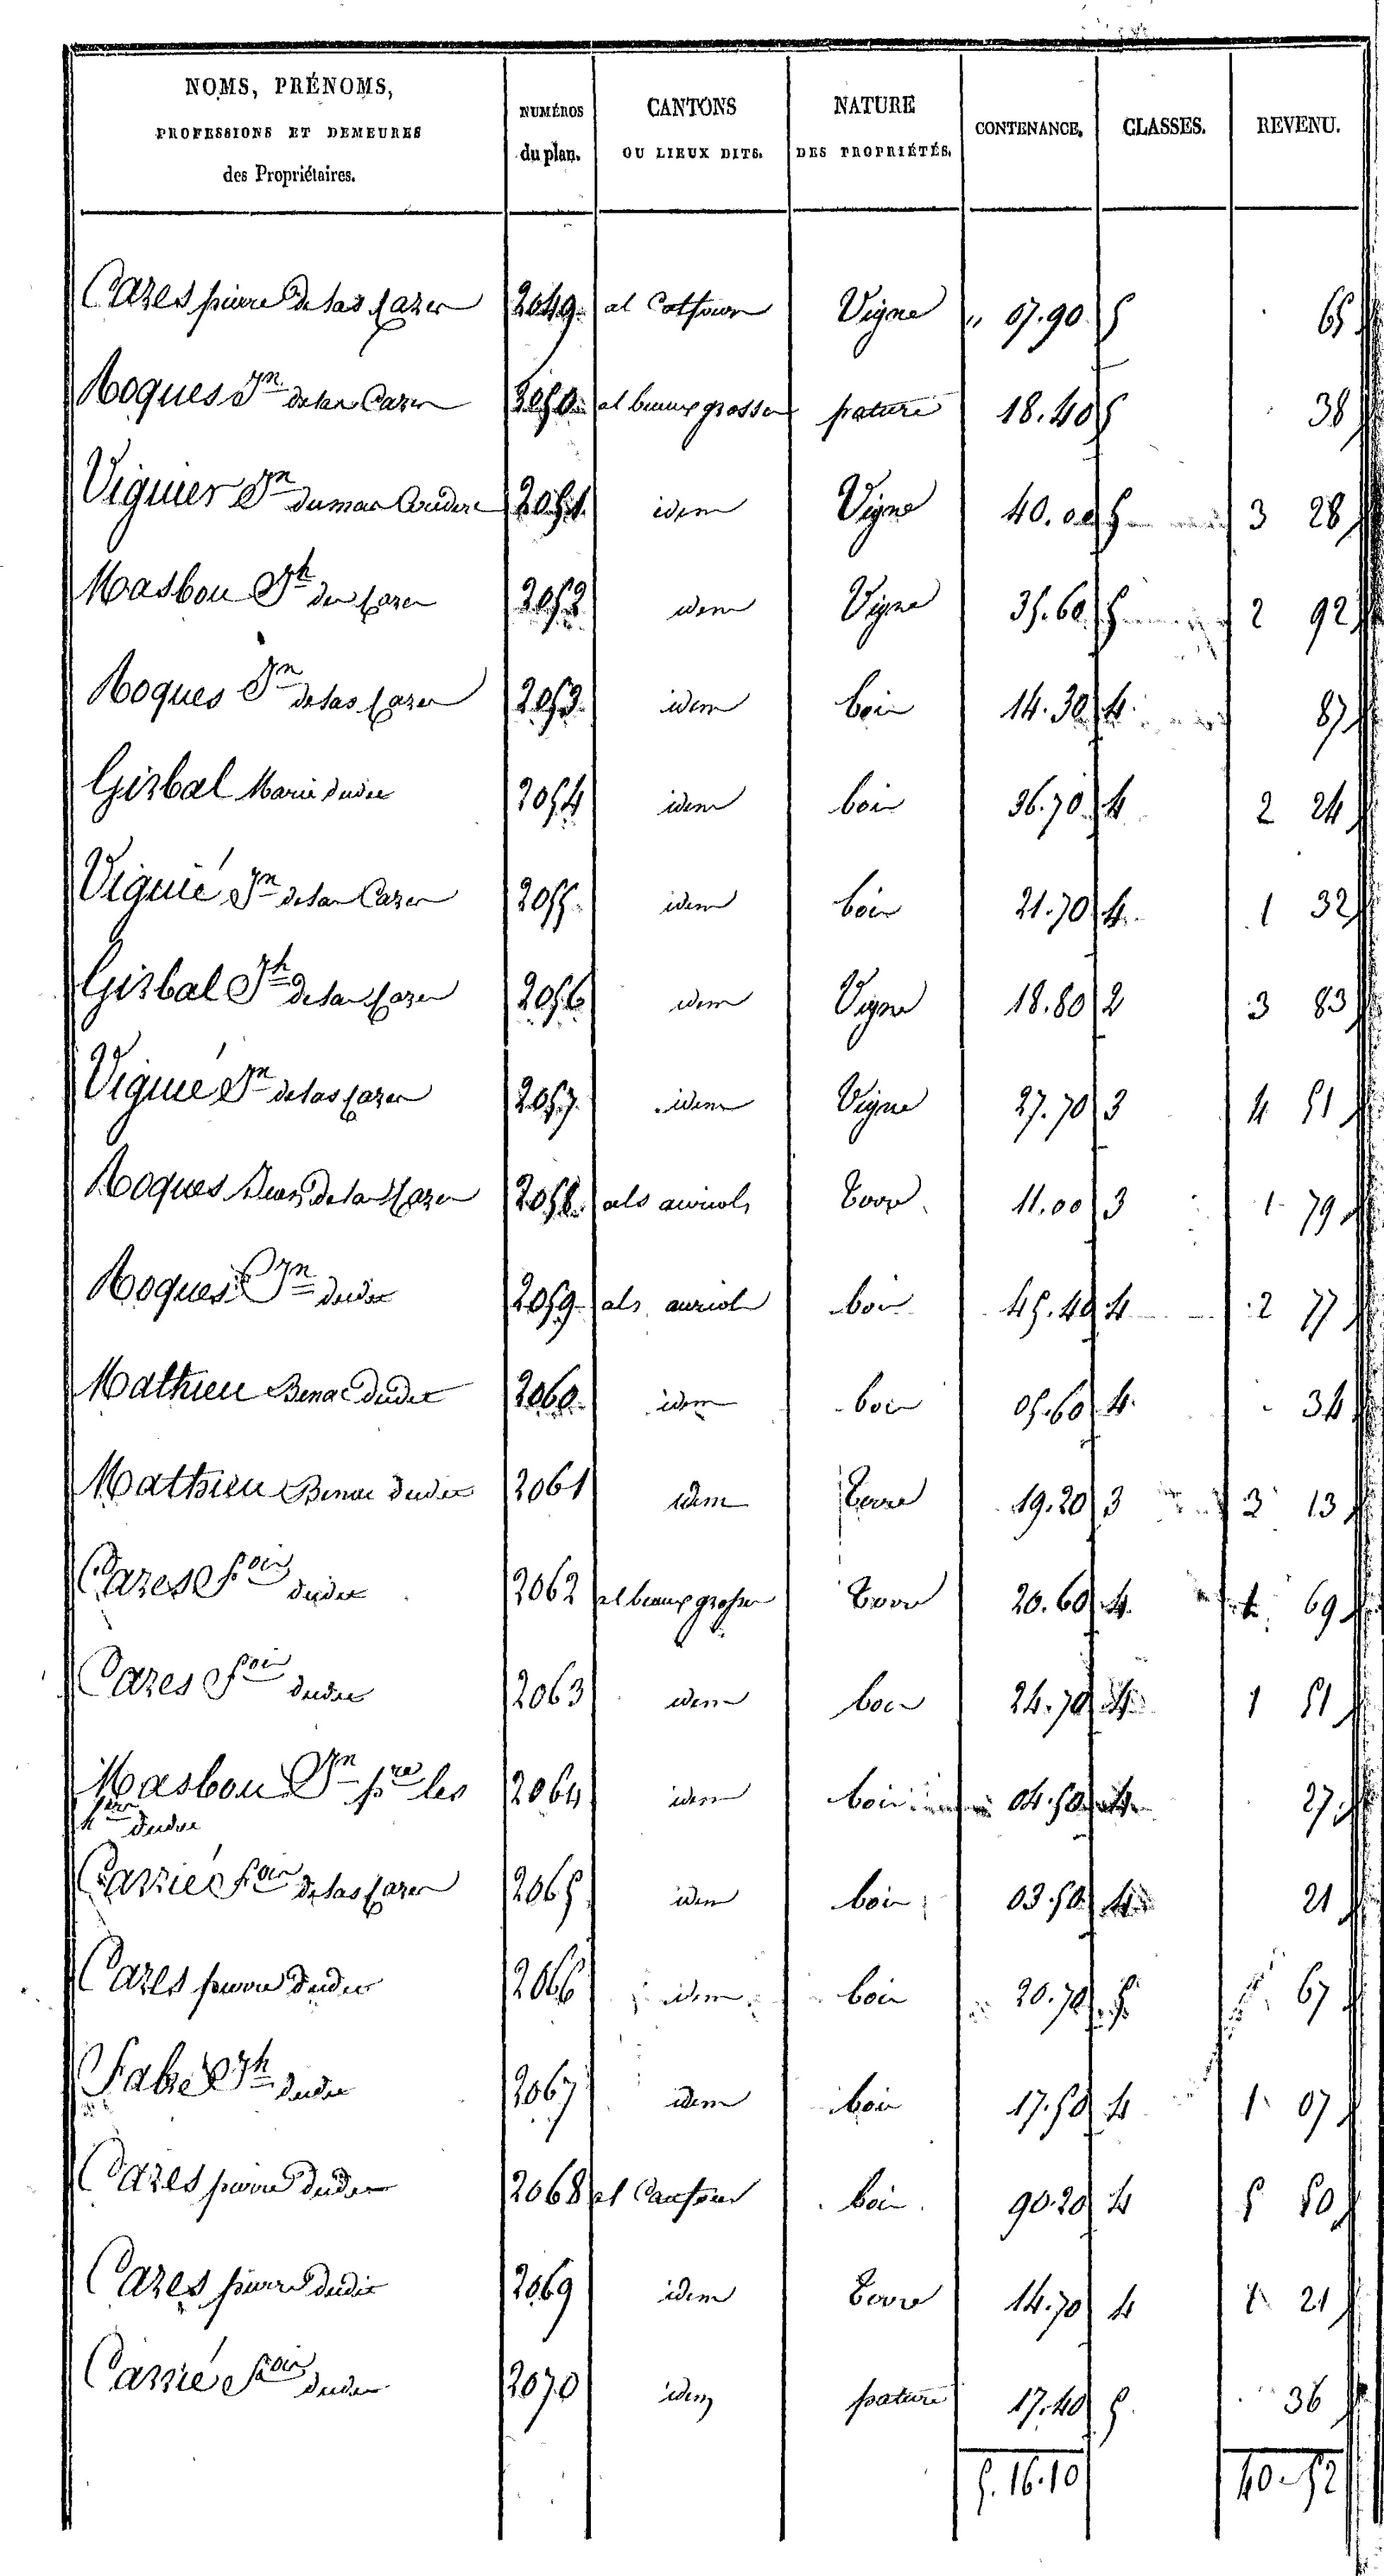 NOMS, PRÉNOMS,
PROFESSIONS ET DEMEURES
des Propriétaires.
NUMÉROS
du plan.
CANTONS
OU LIEUX DITS.
NATURE
DES PROPRIÉTÉS.
CONTENANCE.
CLASSES.
REVENU.
Cazes pierre de las Cazes 2049 al Vigne " 07.90 5 65
Roques Jn de las Cazes 2050 al beaux grosses pature 18.40 5 38
Viguier Jn du mas Couderc 2051 idem Vigne 40.00 5 3 28
Masbou Jh de Cazes 2052 idem Vigne 35.60 5 2 92
Roques Jn de las Cazes 2053 idem bois 14.30 4 87
Gisbal Marie dudit 2054 idem bois 36.70 4 2 24
Viguié Jn de las Cazes 2055 idem bois 21.70 4 1 32
Gisbal Jh de las Cazes 2056 idem Vigne 18.80 2 3 83
Viguié Jn de las Cazes 2057 idem Vigne 27.70 3 4 51
Roques de las Cazes 2058 als auriols Terre 11.00 3 1 79
Roques Jn dudit 2059 als auriols bois 45.40 4 2 77
Mathieu Benac dudit 2060 idem bois 05.60 4 34
Mathieu Benac dudit 2061 idem Terre 19.20 3 3 13
Cazes fois dudit 2062 al beaux grosses Terre 20.60 4 1 69
Cazes fois dudit 2063 idem bois 24.70 4 1 51
Masbou Jn pre les 2064 idem bois 04.50 4 27
hers dudit
Carrié fois de las Cazes 2065 idem bois 03.50 4 21
Cazes pierre dudit 2066 idem bois 20.70 5 67
Fabre Jh dudit 2067 idem bois 17.50 4 1 07
Cazes pierre dudit 2068 al bois 90.20 4 5 50
Cazes pierre dudit 2069 idem Terre 14.70 4 1 21
Carrié fois dudit 2070 idem pature 17.40 5 36
5.16.10 40-52